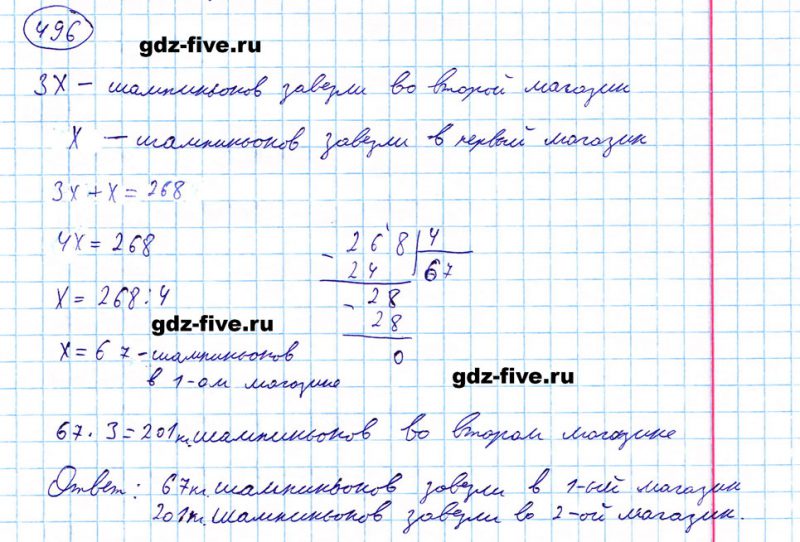 496
gdz-five.ru
3х – шампиньонов завезли во второй магазин
х – шампиньонов завезли в первый магазин
3х + х = 268
4х = 268
х = 268 : 4
gdz-five.ru
х = 67 – шампиньонов
в 1-ом магазине
– 268 | 4
24 | 67
– 28
28
0
gdz-five.ru
67 · 3 = 201 кг. шампиньонов во втором магазине
Ответ: 67 кг. шампиньонов завезли в 1-ый магазин
201 кг. шампиньонов завезли во 2-ой магазин.